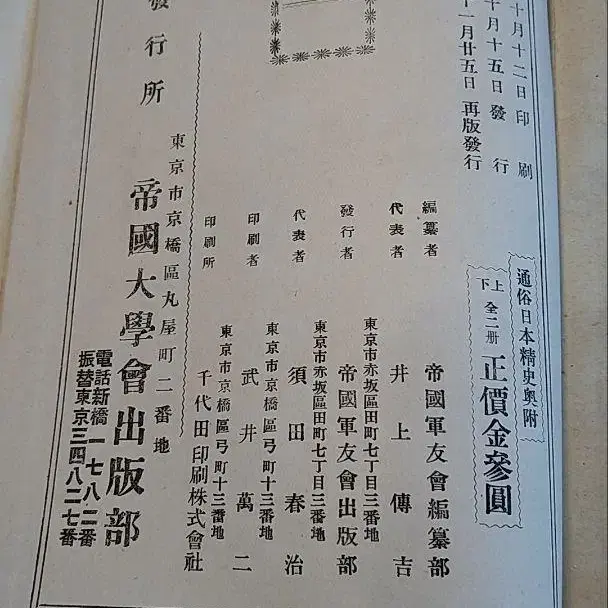 十月十二日印刷
十月十五日發行
十一月廿五日再版發行
通俗日本精史奧附
上下全二册 正價金參圓
編纂者 帝國軍友會編纂部
代表者 井上傳吉
東京市赤坂區田町七丁目三番地
發行者 帝國軍友會出版部
東京市赤坂區田町七丁目三番地
代表者 須田春治
東京市京橋區弓町十三番地
印刷者 武井萬二
東京市京橋區弓町十三番地
印刷所 千代田印刷株式會社
東京市京橋區丸屋町二番地
發行所 帝國大學會出版部
電話新橋一七八二番
振替東京三四八二七番